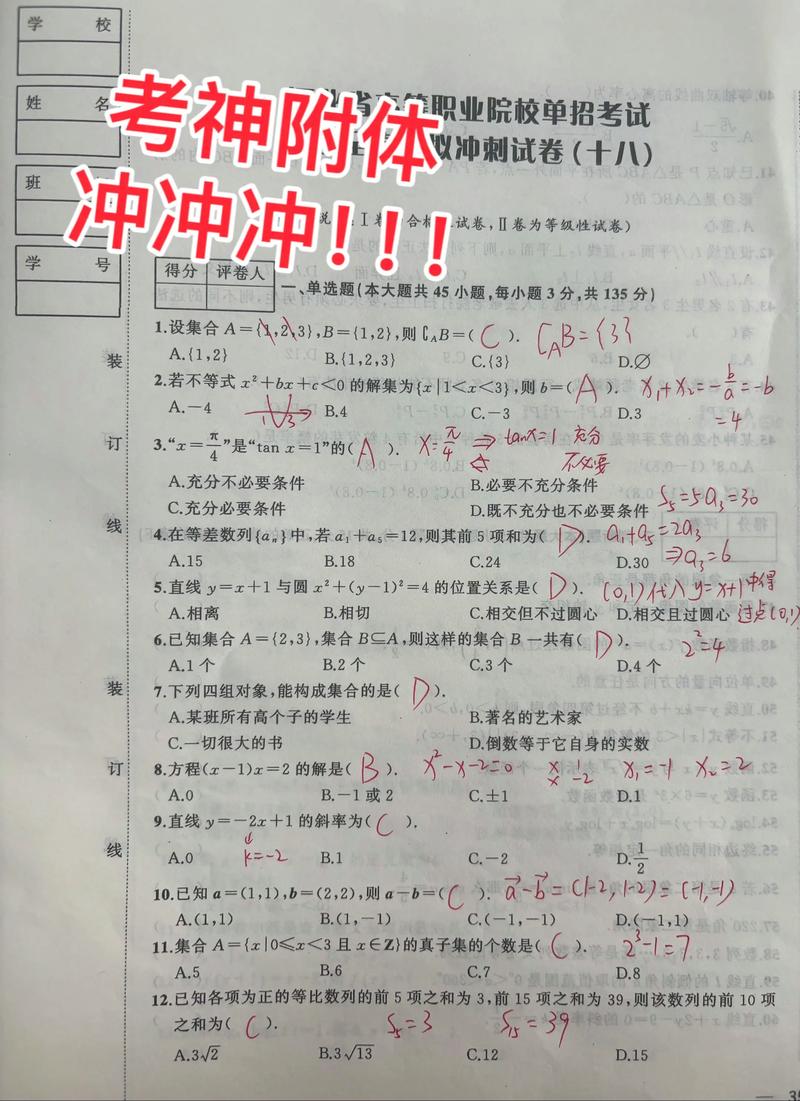 学 校
姓 名
班
学 号
考神附体
冲冲冲!!!
省高等职业院校单招考试
拟冲刺试卷(十八)
试卷,Ⅱ卷为等级性试卷)
得分 评卷人
一、单选题(本大题共45小题,每小题3分,共135分)
1.设集合A={1,2,3},B={1,2},则∁_AB=( C ). ∁_AB={3}
A.{1,2} B.{1,2,3} C.{3} D.∅
2.若不等式x²+bx+c<0的解集为{x|1<x<3},则b=( A ). x₁+x₂=-b/a=-b
A.-4 B.4 C.-3 D.3 =4
1 3
3.“x=π/4”是“tan x=1”的( A ). x=π/4 ⇒ tanx=1 充分
不必要
A.充分不必要条件 B.必要不充分条件
C.充分必要条件 D.既不充分也不必要条件 S₅=5a₃=30
4.在等差数列{aₙ}中,若a₁+a₅=12,则其前5项和为( D ). a₁+a₅=2a₃
A.15 B.18 C.24 D.30 ⇒a₃=6
5.直线y=x+1与圆x²+(y-1)²=4的位置关系是( D ). (0,1)代入y=x+1中得
A.相离 B.相切 C.相交但不过圆心 D.相交且过圆心 过点(0,1)
6.已知集合A={2,3},集合B⊆A,则这样的集合B一共有( D ). 2²=4
A.1个 B.2个 C.3个 D.4个
7.下列四组对象,能构成集合的是( D ).
A.某班所有高个子的学生 B.著名的艺术家
C.一切很大的书 D.倒数等于它自身的实数
8.方程(x-1)x=2的解是( B ). x²-x-2=0 x 1 x₁=-1 x₂=2
x -2
A.0 B.-1或2 C.±1 D.1
9.直线y=-2x+1的斜率为( C ).
A.0 k=-2 B.1 C.-2 D.1/2
10.已知a=(1,1),b=(2,2),则a-b=( C ). a-b=(1-2,1-2)=(-1,-1)
A.(1,1) B.(1,-1) C.(-1,-1) D.(-1,1)
11.集合A={x|0≤x<3且x∈Z}的真子集的个数是( C ). 2³-1=7
A.5 B.6 C.7 D.8
12.已知各项为正的等比数列的前5项之和为3,前15项之和为39,则该数列的前10项
之和为( C ). S₅=3 S₁₅=39
A.3√2 B.3√13 C.12 D.15
装
订
线
装
订
线